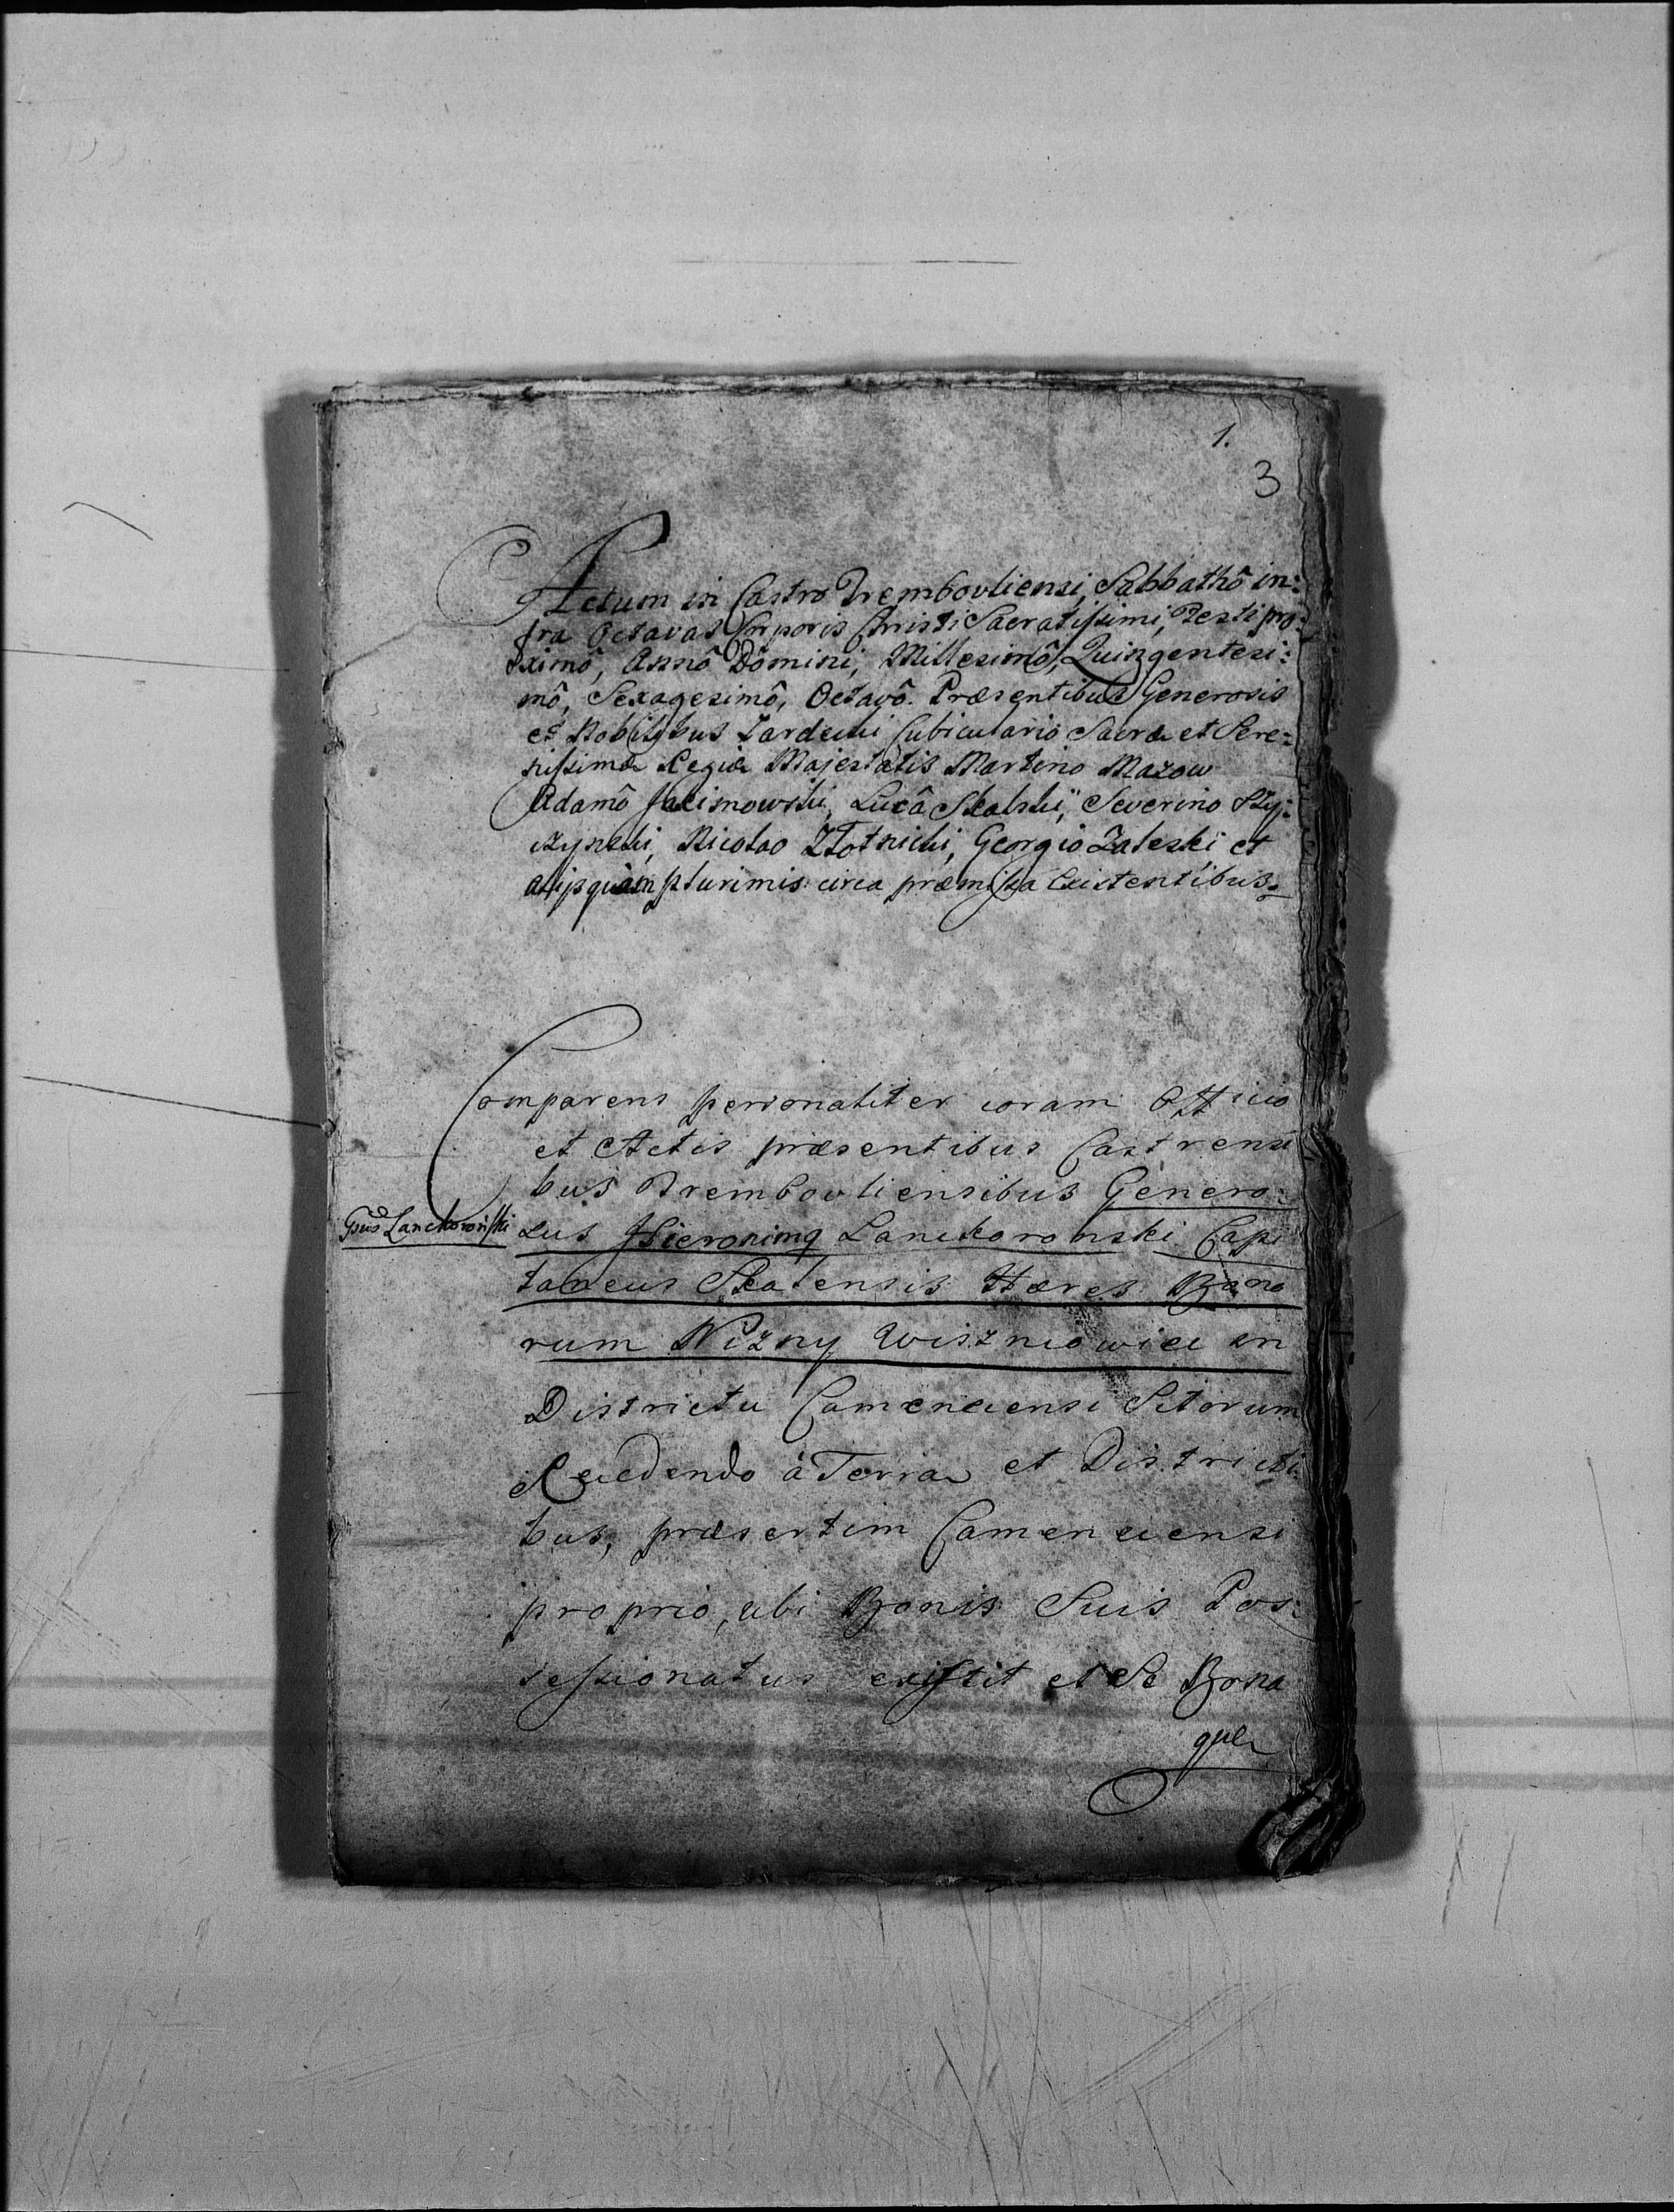 1.
3
Actum in Castro Trembovliensi, Sabbathô in:
fra Octavas Corporis Christi Sacratissimi, Festi pro:
ximô, Annô Domini, Millesimô, Quingentesi:
mô, Sexagesimô, Octavô. Præsentibus Generosis
et Nobilibus Cubiculario Sacræ et Sere:
nissimæ Regiæ Majestatis Martino Mazow
Adamô Jacimowski, Lucâ Skalski, Severino
Nicolao Złotnicki, Georgio Zaleski et
alijs quàm plurimis circa præmissa Existentibus.
Comparens personaliter coram Officio
et Actis præsentibus Castrensi
bus Trembovliensibus Genero:
Gsus Lanckoroński
sus Hieronimq Lanckoronski Capi
taneus Skalensis Hæres Bono
rum Nizny Wiszniowiec in
Districtu Camenecensi Sitorum
Recedendo à Terra et Districti
bus, præsertim Camenecensi
proprio, ubi Bonis Suis Pos:
sessionatus existit et Se Bona
que